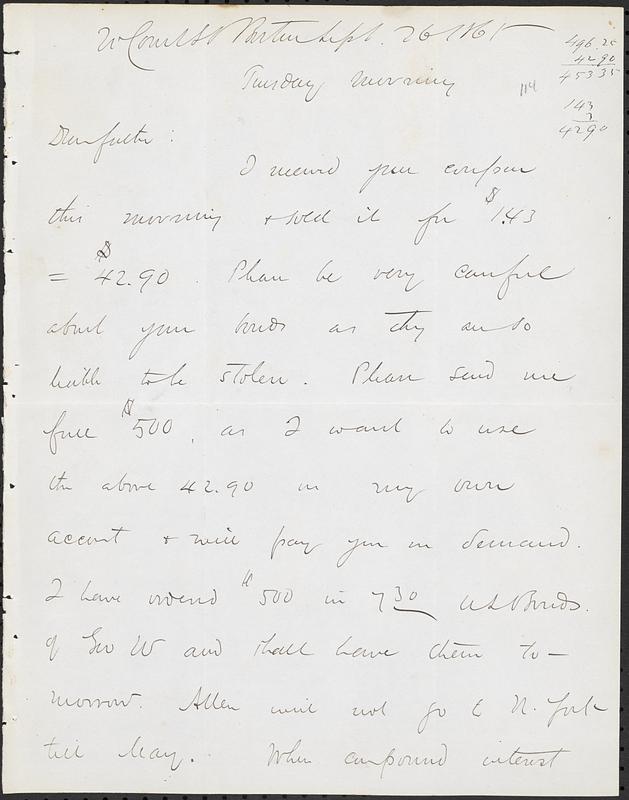 20 Court St Boston Sept. 26 1865
Tuesday morning
114
496.25
42.90
453 35
143
3
4290
Dear father :
I received your coupon
this morning & sold it for $1.43
= $42.90. Please be very careful
about your bonds as they are so
liable to be stolen. Please send me
full $500, as I want to use
the above 42.90 on my own
account & will pay you on demand.
I have ordered $500 in 7 30 US Bonds.
of Geo W and shall have them to-
morrow. Allen will not go to N. York
till May. When compound interest